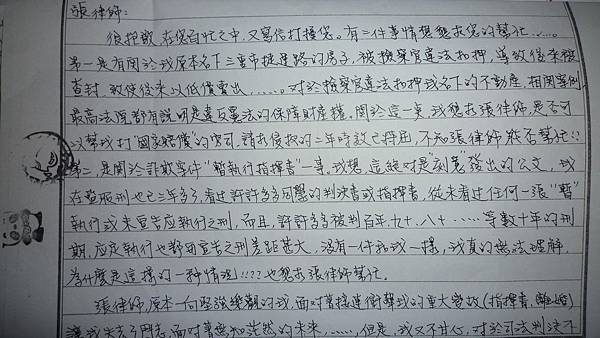 張律師:
很抱歉在您百忙之中,又寫信打擾您。有二件事情想懇求您的幫忙……。
第一是有關於我原本名下三重市捷運路的房子,被檢察官違法扣押,導致後來被
查封,致使後來以低價賣出,……。對於檢察官違法扣押我名下的不動產,相關案例
最高法院都有說明是違反憲法的保障財產權,關於這一責,我想求張律師,是否可
以幫我打"國家賠償"的官司,請求侵權的二年時效已將屆,不知張律師能否幫忙!!
第二,是關於詐欺案件"暫執行指揮書"一事。我想,這絕對是"刻意發出的公文,我
在監服刑也已三年多,看过許許多多同學的判決書或指揮書,從未看过任何一張"暫"
執行或未宣告应執行之刑,而且,許許多多被判百年.九十.八十……等數十年的刑
期,应定執行也都與宣告之刑差距甚大,沒有一件和我一樣,我真的無法理解,
為什麼是這樣的一种情形!!??也想求張律師幫忙。
張律師,原本一向堅強樂觀的我,面对着接連衝擊我的重大變故(指揮書,離婚)
讓我失去了鬥志,面对着無知茫然的未來,……,但是,我又不甘心,对於司法判決不